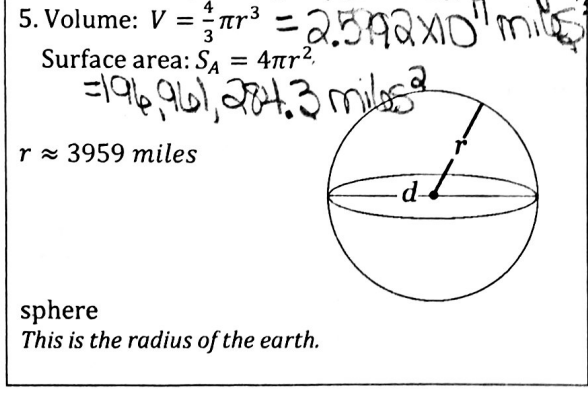 5. Volume: V = 4/3 πr³ = 2.5992x10¹¹ miles³
Surface area: S_A = 4πr².
=196,961,284.3 miles²
r ≈ 3959 miles
r
d
sphere
This is the radius of the earth.